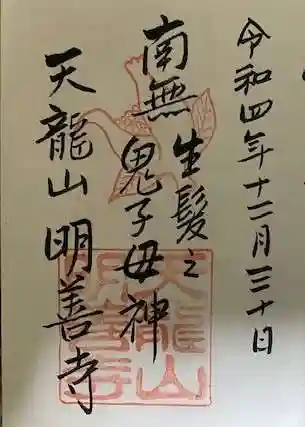 令和四年十二月三十日
南無生髪之鬼子母神
天龍山明善寺
天龍山
明善寺